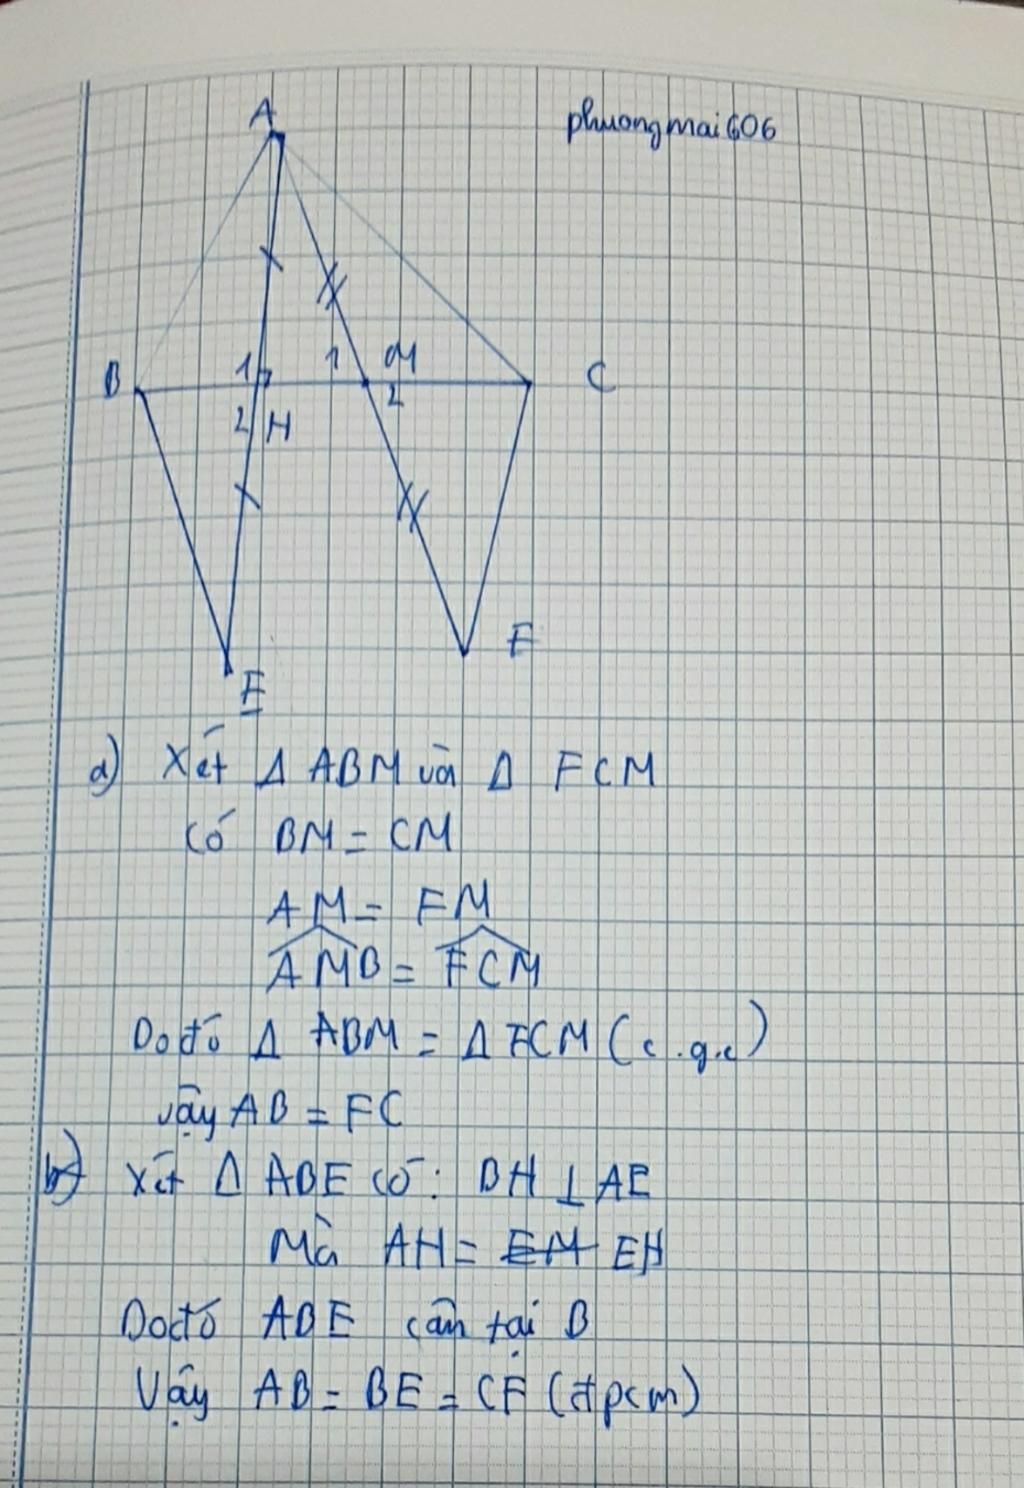 A
phuongmai606
B
1
1
M
C
2
H
2
F
E
a) Xét Δ ABM và Δ FCM
Có BM = CM
AM = FM
AMB = FCM
Do đó Δ ABM = Δ FCM (c.g.c)
Vậy AB = FC
b) Xét Δ ABE có: BH ⊥ AE
Mà AH = EM EH
Do đó ABE cân tại B
Vậy AB = BE = CF (đpcm)